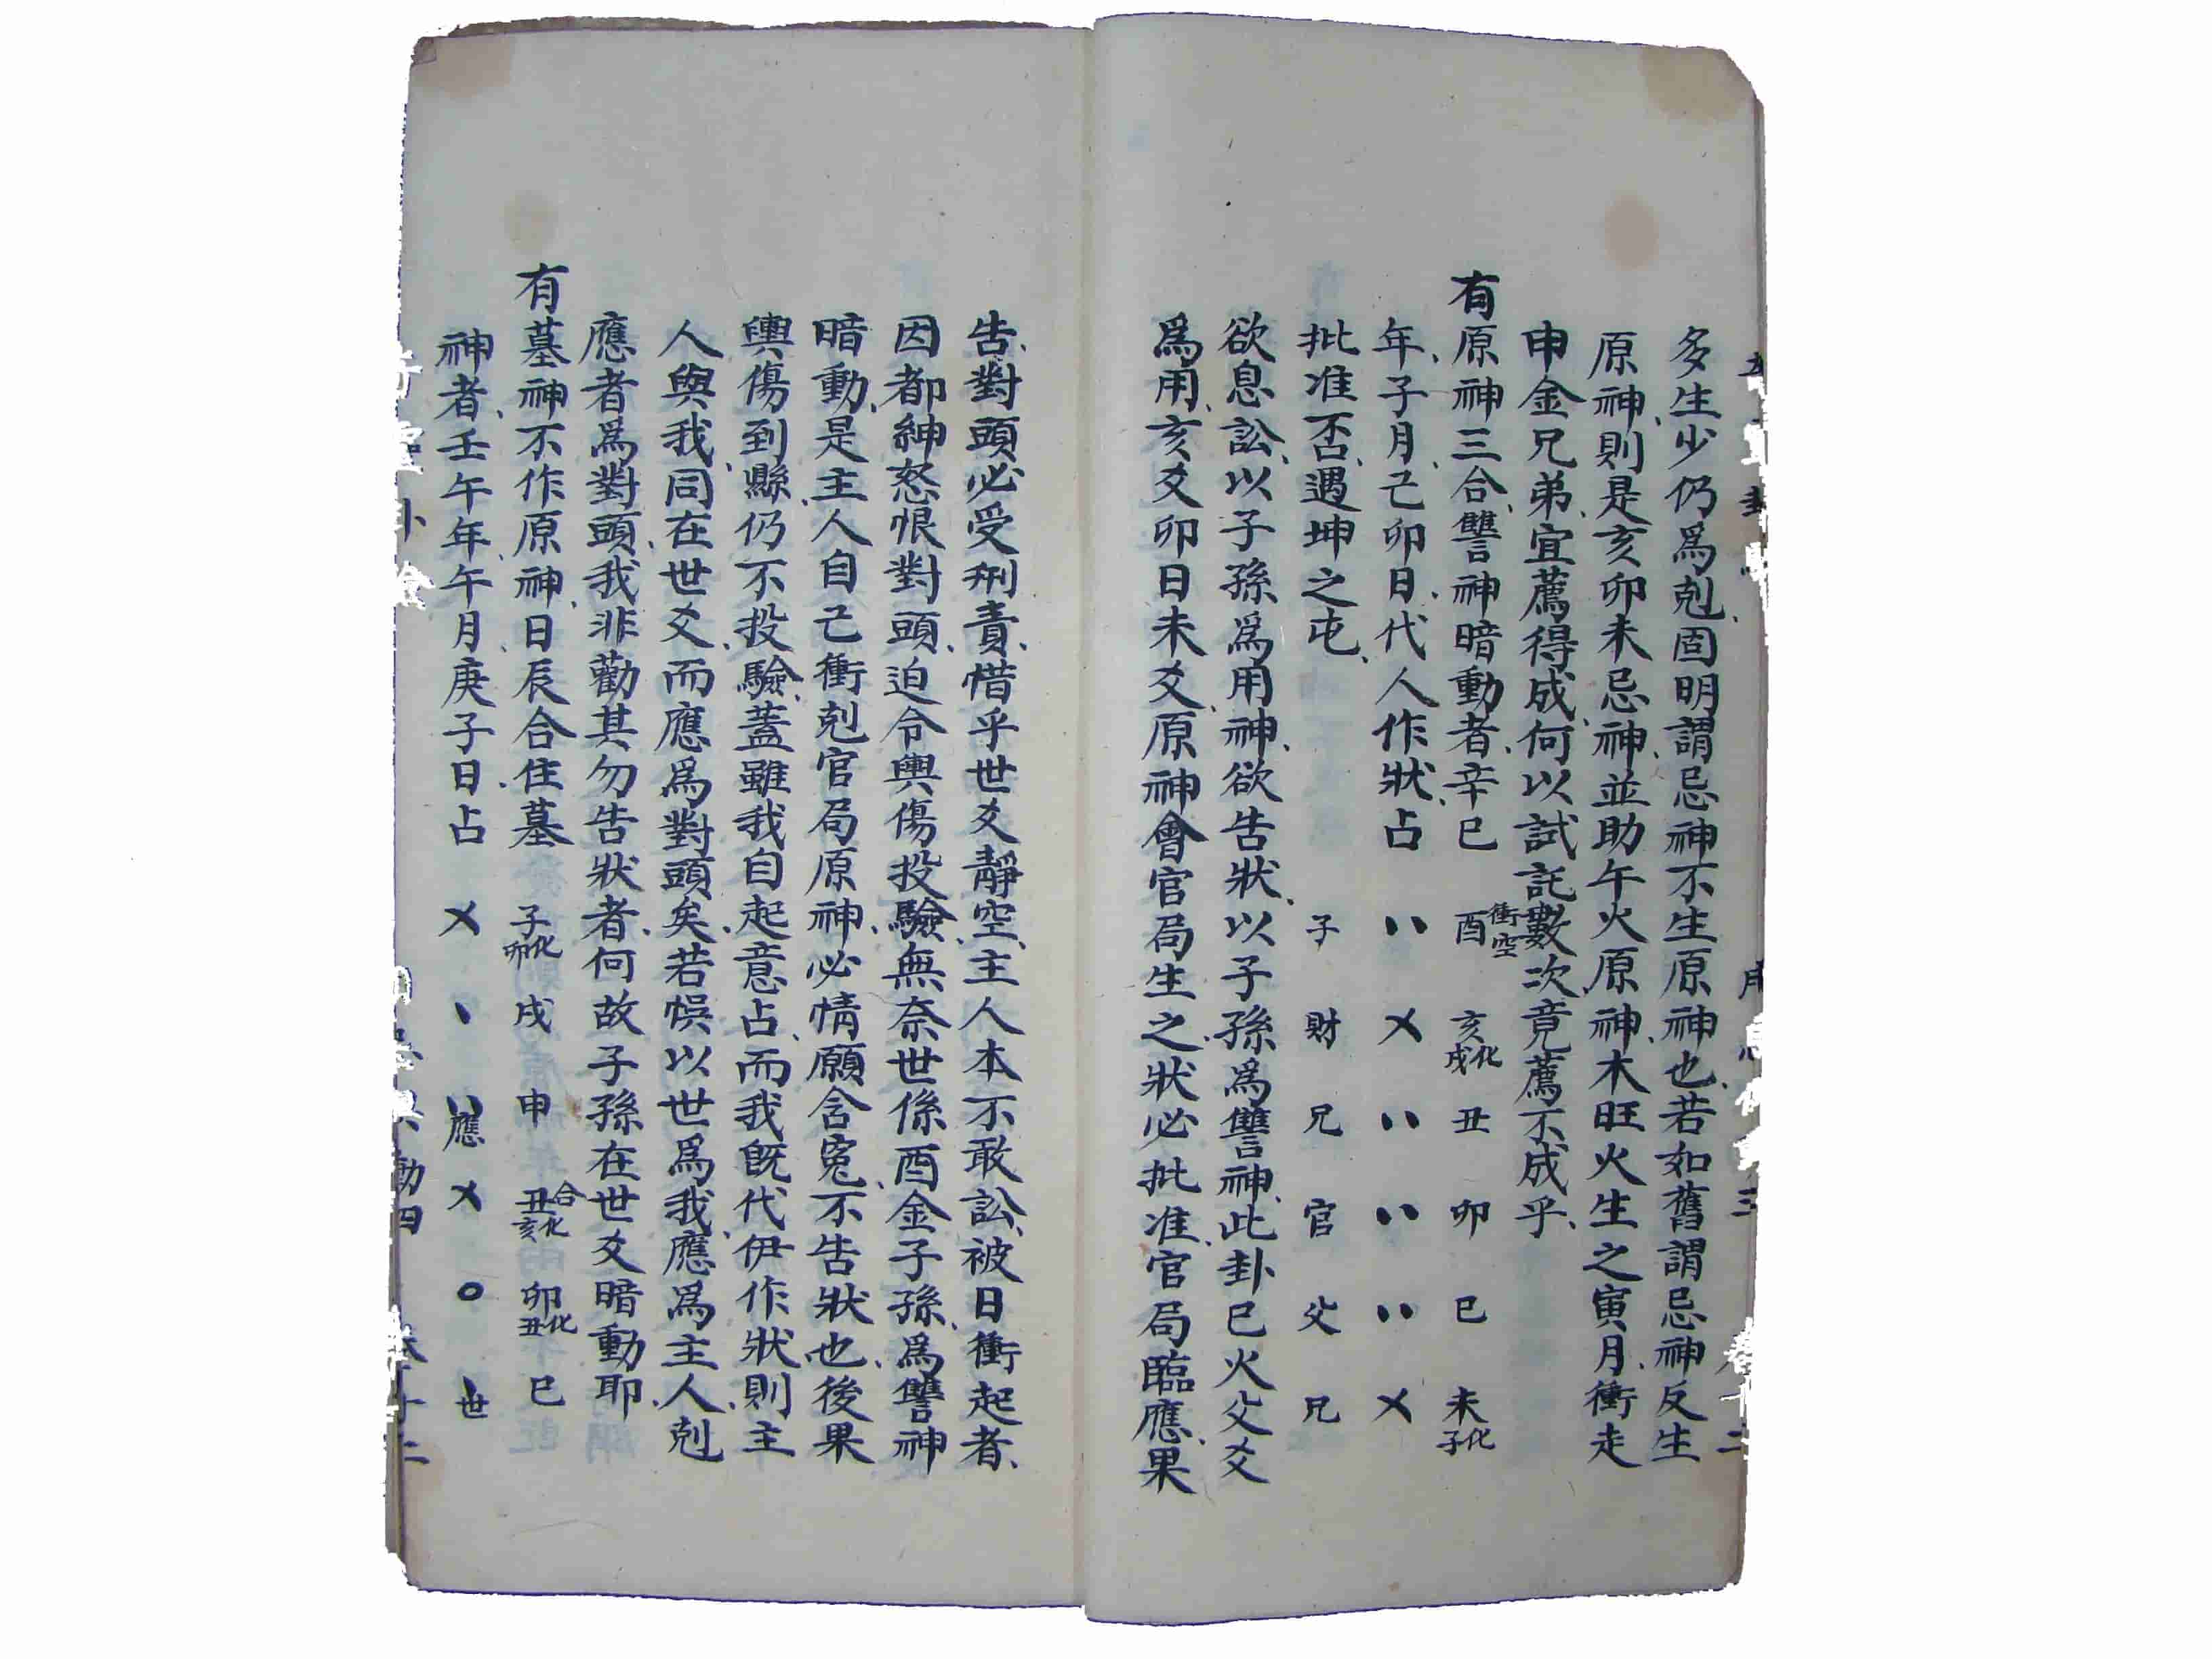 多生少仍爲剋固明謂忌神不生原神也若如舊謂忌神反生
原神則是亥卯未忌神並助午火原神木旺火生之寅月衝走
申金兄弟宜薦得成何以試託數次竟薦不成乎
有原神三合讐神暗動者辛巳 酉衝空 亥化戌 丑 卯 巳 未化子
年子月己卯日代人作狀占 〃 ㄨ 〃 〃 〃 ㄨ
批准否遇坤之屯 子 財 兄 官 父 兄
欲息訟以子孫爲用神欲告狀以子孫爲讐神此卦巳火父爻
爲用亥爻卯日未爻原神會官局生之狀必批准官局臨應果
告對頭必受刑責惜乎世爻靜空主人本不敢訟被日衝起者
因都紳怒恨對頭迫令輿傷投驗無奈世係酉金子孫爲讐神
暗動是主人自己衝剋官局原神必情願含冤不告狀也後果
輿傷到縣仍不投驗蓋雖我自起意占而我既代伊作狀則主
人與我同在世爻而應爲對頭矣若悞以世爲我應爲主人剋
應者爲對頭我非勸其勿告狀者何故子孫在世爻暗動耶
有墓神不作原神日辰合住墓 子化卯 戌 申 丑合化亥 卯化丑 巳
神者壬午年午月庚子日占 ㄨ 丶 〃應 ㄨ 〇 丶世